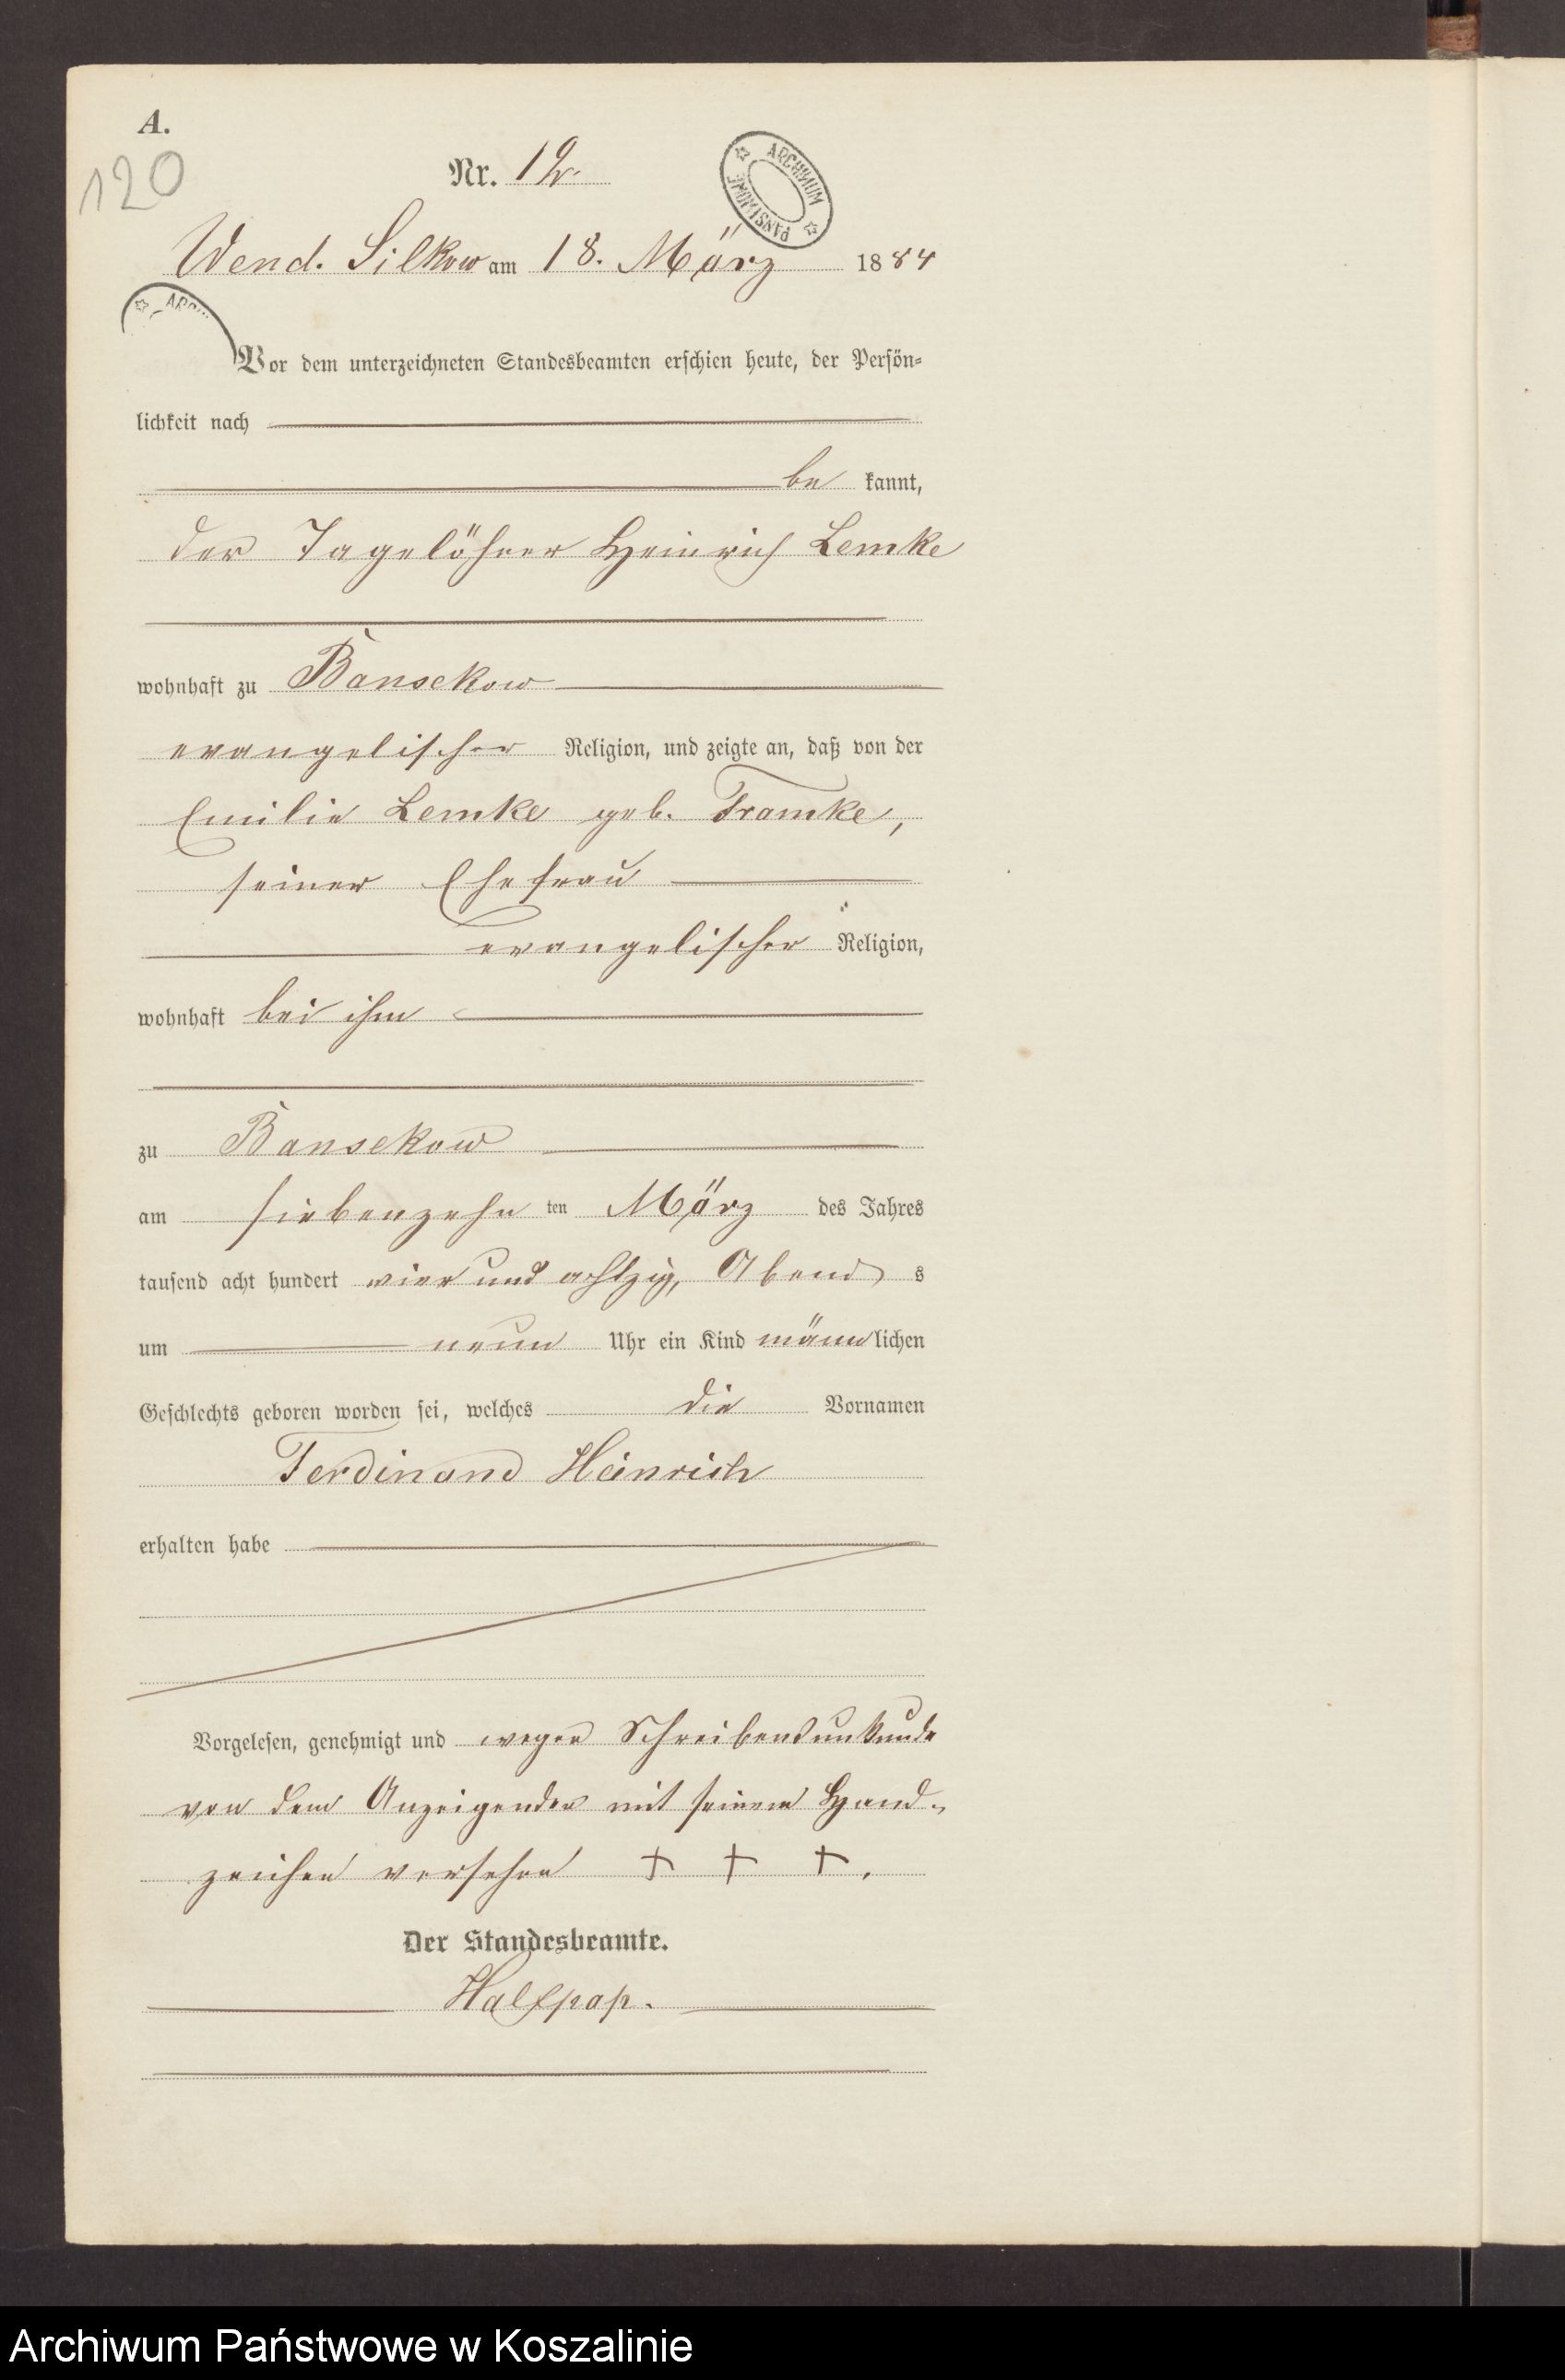 A.
120
Nr. 12.
ARCHIWUM PAŃSTWOWE
Wend. Silkow am 18. März 1884
ARCHI
Vor dem unterzeichneten Standesbeamten erschien heute, der Persön-
lichkeit nach
be kannt,
der Tagelöhner Heinrich Lemke
wohnhaft zu Bansekow
evangelischer Religion, und zeigte an, daß von der
Emilie Lemke geb. Framke,
seiner Ehefrau
evangelischer Religion,
wohnhaft bei ihm
zu Bansekow
am siebenzehn ten März des Jahres
tausend acht hundert vier und achtzig, Abend s
um neun Uhr ein Kind männlichen
Geschlechts geboren worden sei, welches die Vornamen
Ferdinand Heinrich
erhalten habe
Vorgelesen, genehmigt und wegen Schreibensunkunde
von dem Anzeigenden mit seinem Hand-
zeichen versehen + + +.
Der Standesbeamte.
Halfpap.
Archiwum Państwowe w Koszalinie